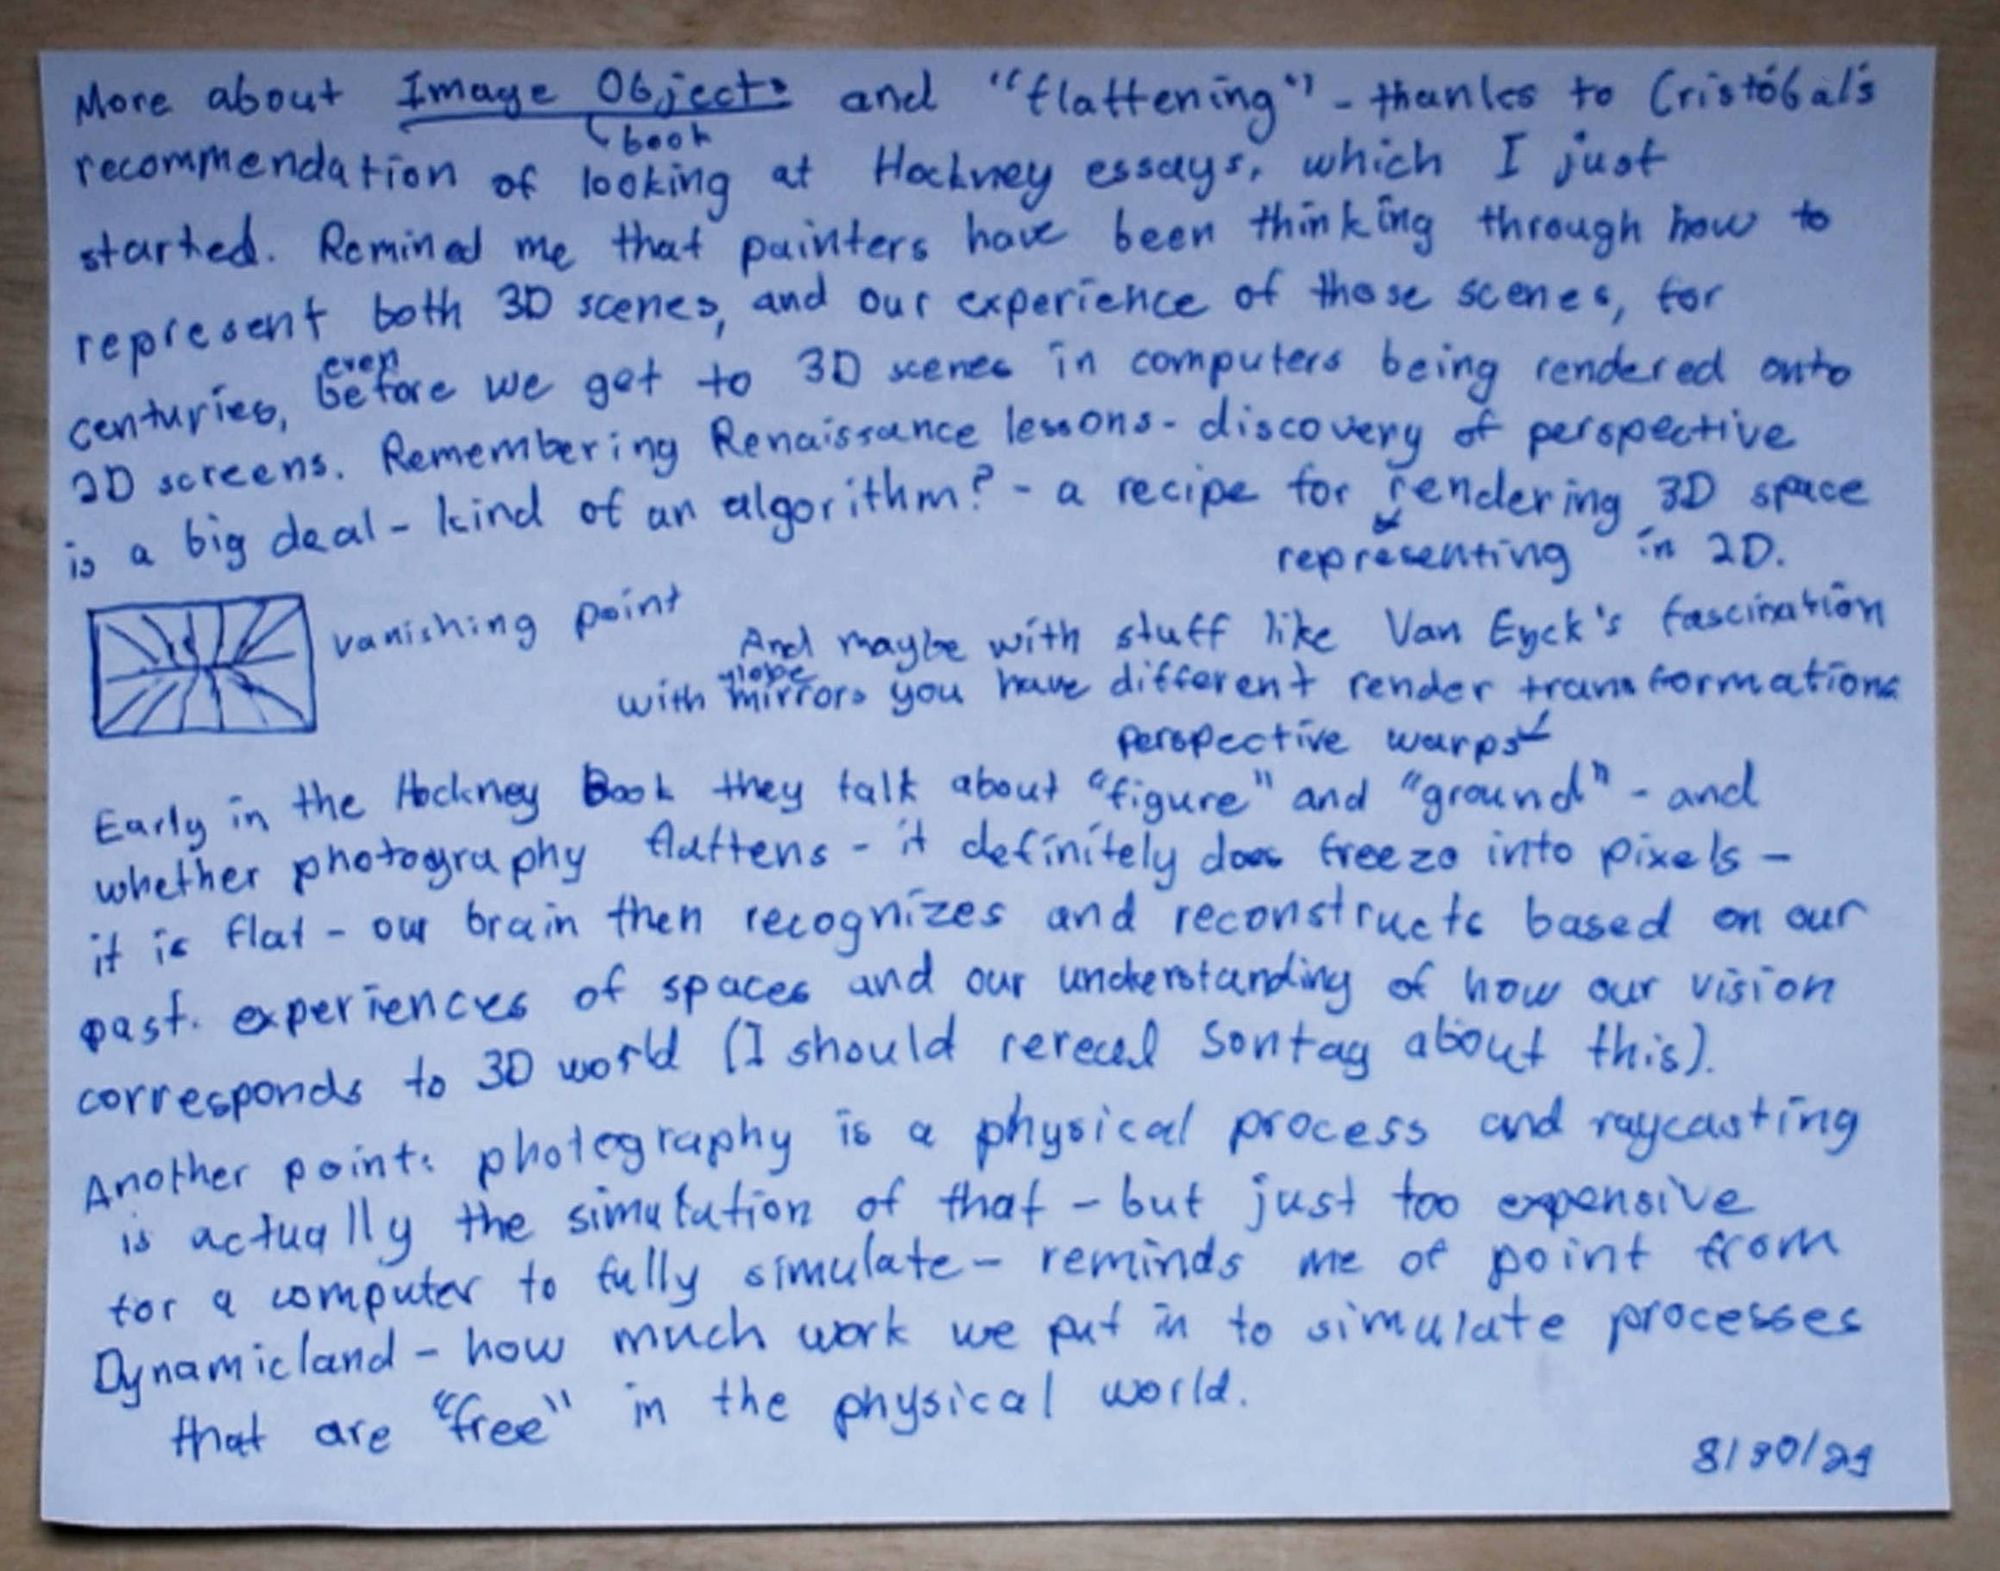 More about Image Objects and "flattening" - thanks to Cristóbal's
book
recommendation of looking at Hockney essays, which I just
started. Remined me that painters have been thinking through how to
represent both 3D scenes, and our experience of those scenes, for
even
centuries, before we get to 3D scenes in computers being rendered onto
2D screens. Remembering Renaissance lessons - discovery of perspective
is a big deal - kind of an algorithm? - a recipe for rendering 3D space
representing in 2D.
vanishing point
And maybe with stuff like Van Eyck's fascination
globe
with mirrors you have different render transformations
perspective warps
Early in the Hockney Book they talk about "figure" and "ground" - and
whether photography flattens - it definitely does freeze into pixels -
it is flat - our brain then recognizes and reconstructs based on our
past. experiences of spaces and our understanding of how our vision
corresponds to 3D world (I should reread Sontag about this).
Another point: photography is a physical process and raycasting
is actually the simulation of that - but just too expensive
for a computer to fully simulate - reminds me of point from
Dynamicland - how much work we put in to simulate processes
that are "free" in the physical world.